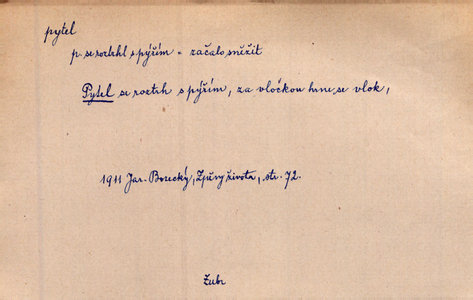 pytel
p. se roztrhl s pýřím = začalo sněžit
Pytel se roztrh s pýřím, za vločkou hrne se vlok,
1911 Jar. Borecký, Zpěvy života, str. 72.
Žubr